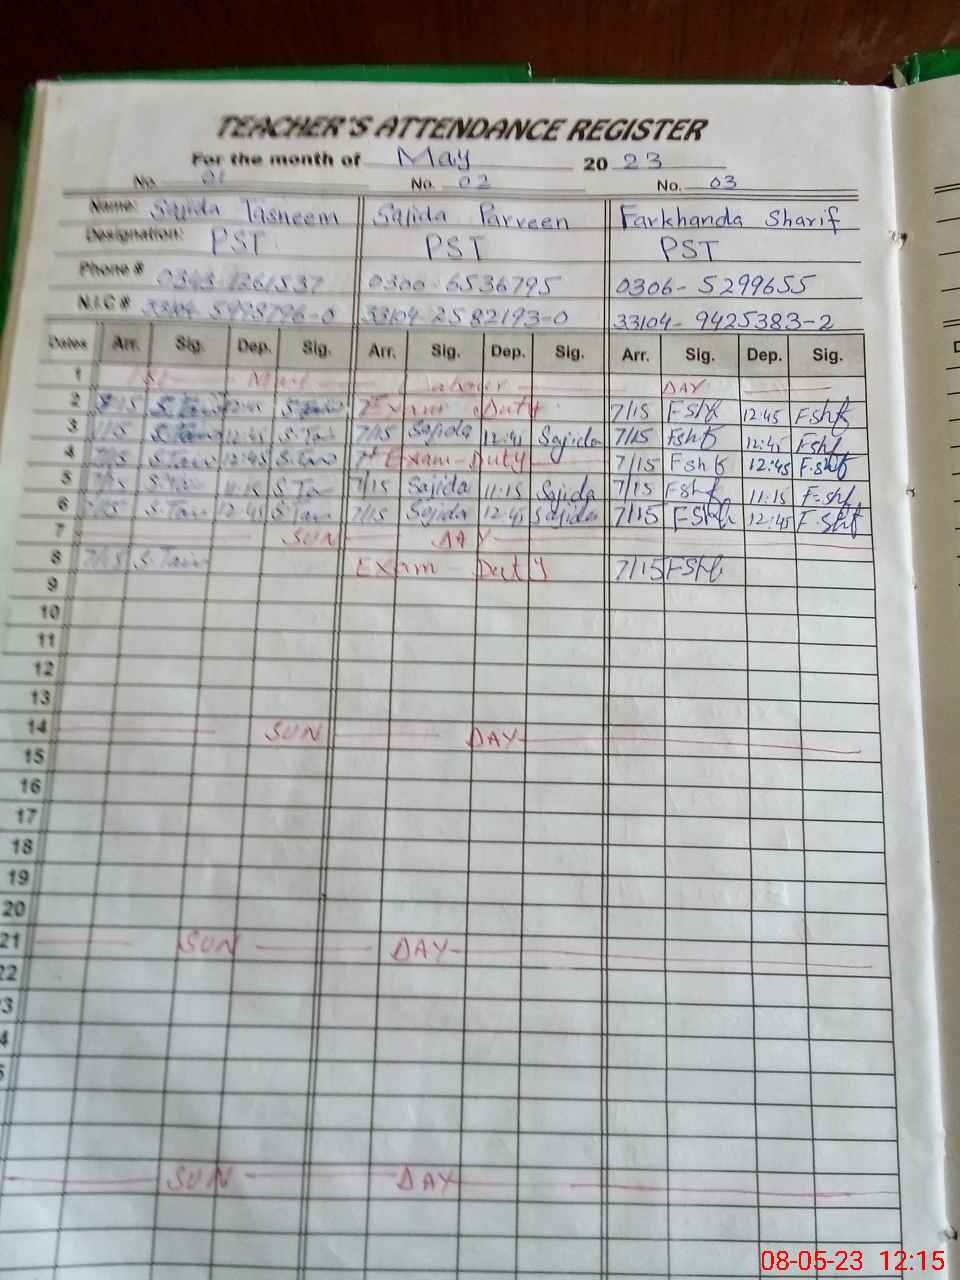 TEACHER'S ATTENDANCE REGISTER
For the month of May 2023
No. 01 No. 02 No. 03
Name: Sajida Tasneem Sajida Parveen Farkhanda Sharif
Designation: PST PST PST
Phone # 0300-6536795 0306-5299655
N.I.C # 33104-2582193-0 33104-9425383-2
Dates Arr. Sig. Dep. Sig. Arr. Sig. Dep. Sig. Arr. Sig. Dep. Sig.
1 Labour DAY
2 12:45 Exam Duty 7/15 Fshf 12:45 Fshf
3 12:45 S.Tas 7/15 Sajida 12:45 Sajida 7/15 Fshf 12:45 Fshf
4 12:45 S.Tas Exam-Duty 7/15 Fshf 12:45 F.shf
5 11:15 7/15 Sajida 11:15 Sajida 7/15 Fshf 11:15 F.shf
6 12:45 S.Tas 7/15 Sajida 12:45 Sajida 7/15 FShf 12:45 F.Shf
7 SUN DAY
8 7/15 S.Tas Exam Duty 7/15 FShf
9
10
11
12
13
14 SUN DAY
15
16
17
18
19
20
21 SUN DAY
22
SUN DAY
08-05-23 12:15